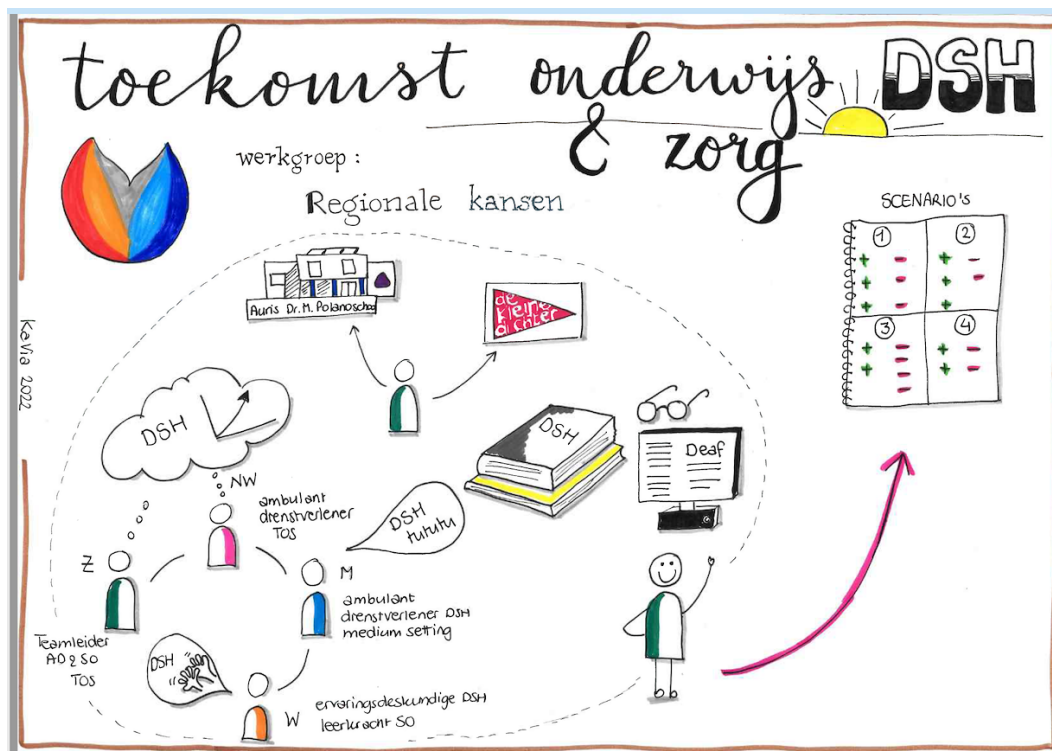 toekomst onderwijs DSH
& zorg
werkgroep :
Regionale kansen
SCENARIO'S
1
2
3
4
Auris Dr. M. Polanoschool
de
kleine
dichter
DSH
DSH
Deaf
NW
ambulant
dienstverlener
TOS
DSH
tututu
Z
M
ambulant
dienstverlener DSH
medium setting
Teamleider
AD & SO
TOS
DSH
W
ervaringsdeskundige DSH
leerkracht SO
KaVia 2022